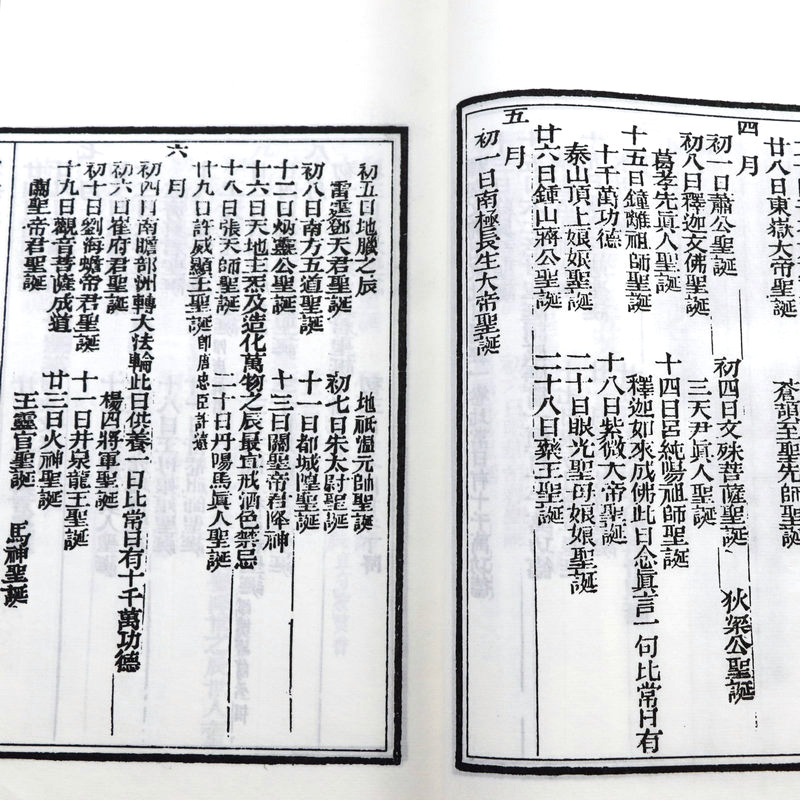 廿八日東嶽大帝聖誕 蒼頡至聖先師聖誕
四月
初一日蕭公聖誕 初四日文殊菩薩聖誕 狄梁公聖誕
初八日釋迦文佛聖誕 三天尹眞人聖誕
葛孝先眞人聖誕 十四日呂純陽祖師聖誕
十五日鐘離祖師聖誕 釋迦如來成佛此日念眞言一句比常日有
十千萬功德 十八日紫微大帝聖誕
泰山頂上娘娘聖誕 二十日眼光聖母娘娘聖誕
廿六日鍾山蔣公聖誕 二十八日藥王聖誕
五月
初一日南極長生大帝聖誕
初五日地臘之辰 地祇溫元帥聖誕
雷霆鄧天君聖誕 初七日朱太尉聖誕
初八日南方五道聖誕 十一日都城隍聖誕
十二日炳靈公聖誕 十三日關聖帝君降神
十六日天地主炁及造化萬物之辰最宜戒酒色禁忌
十八日張天師聖誕 二十日丹陽馬眞人聖誕
廿九日許威顯王聖誕即唐忠臣許遠
六月
初四日南瞻部洲轉大法輪此日供養一日比常日有十千萬功德
初六日崔府君聖誕 楊四將軍聖誕
初十日劉海蟾帝君聖誕 十一日井泉龍王聖誕
十九日觀音菩薩成道 廿三日火神聖誕
關聖帝君聖誕 王靈官聖誕 馬神聖誕